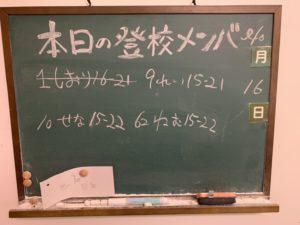 本日の登校メンバー
月
1 しおり 16-21 9 れい 15-21 16
日
10 せな 15-22 62 ねお 15-22